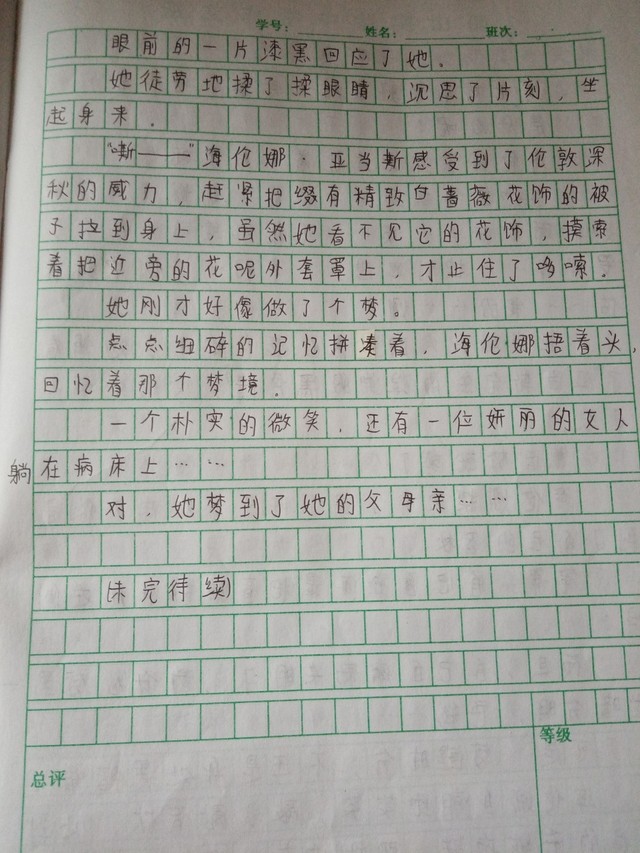 学号： 姓名： 班次：
眼前的一片漆黑回应了她．
她徒劳地揉了揉眼睛，沉思了片刻，坐
起身来．
“嘶——”海伦娜·亚当斯感受到了伦敦深
秋的威力，赶紧把缀有精致白蔷薇花饰的被
子拉到身上，虽然她看不见它的花饰，摸索
着把近旁的花呢外套罩上，才止住了哆嗦．
她刚才好像做了个梦。
点点细碎的记忆拼凑着，海伦娜捂着头，
回忆着那个梦境．
一个朴实的微笑，还有一位妍丽的女人
躺在病床上……
对，她梦到了她的父母亲……
(未完待续)
等级
总评